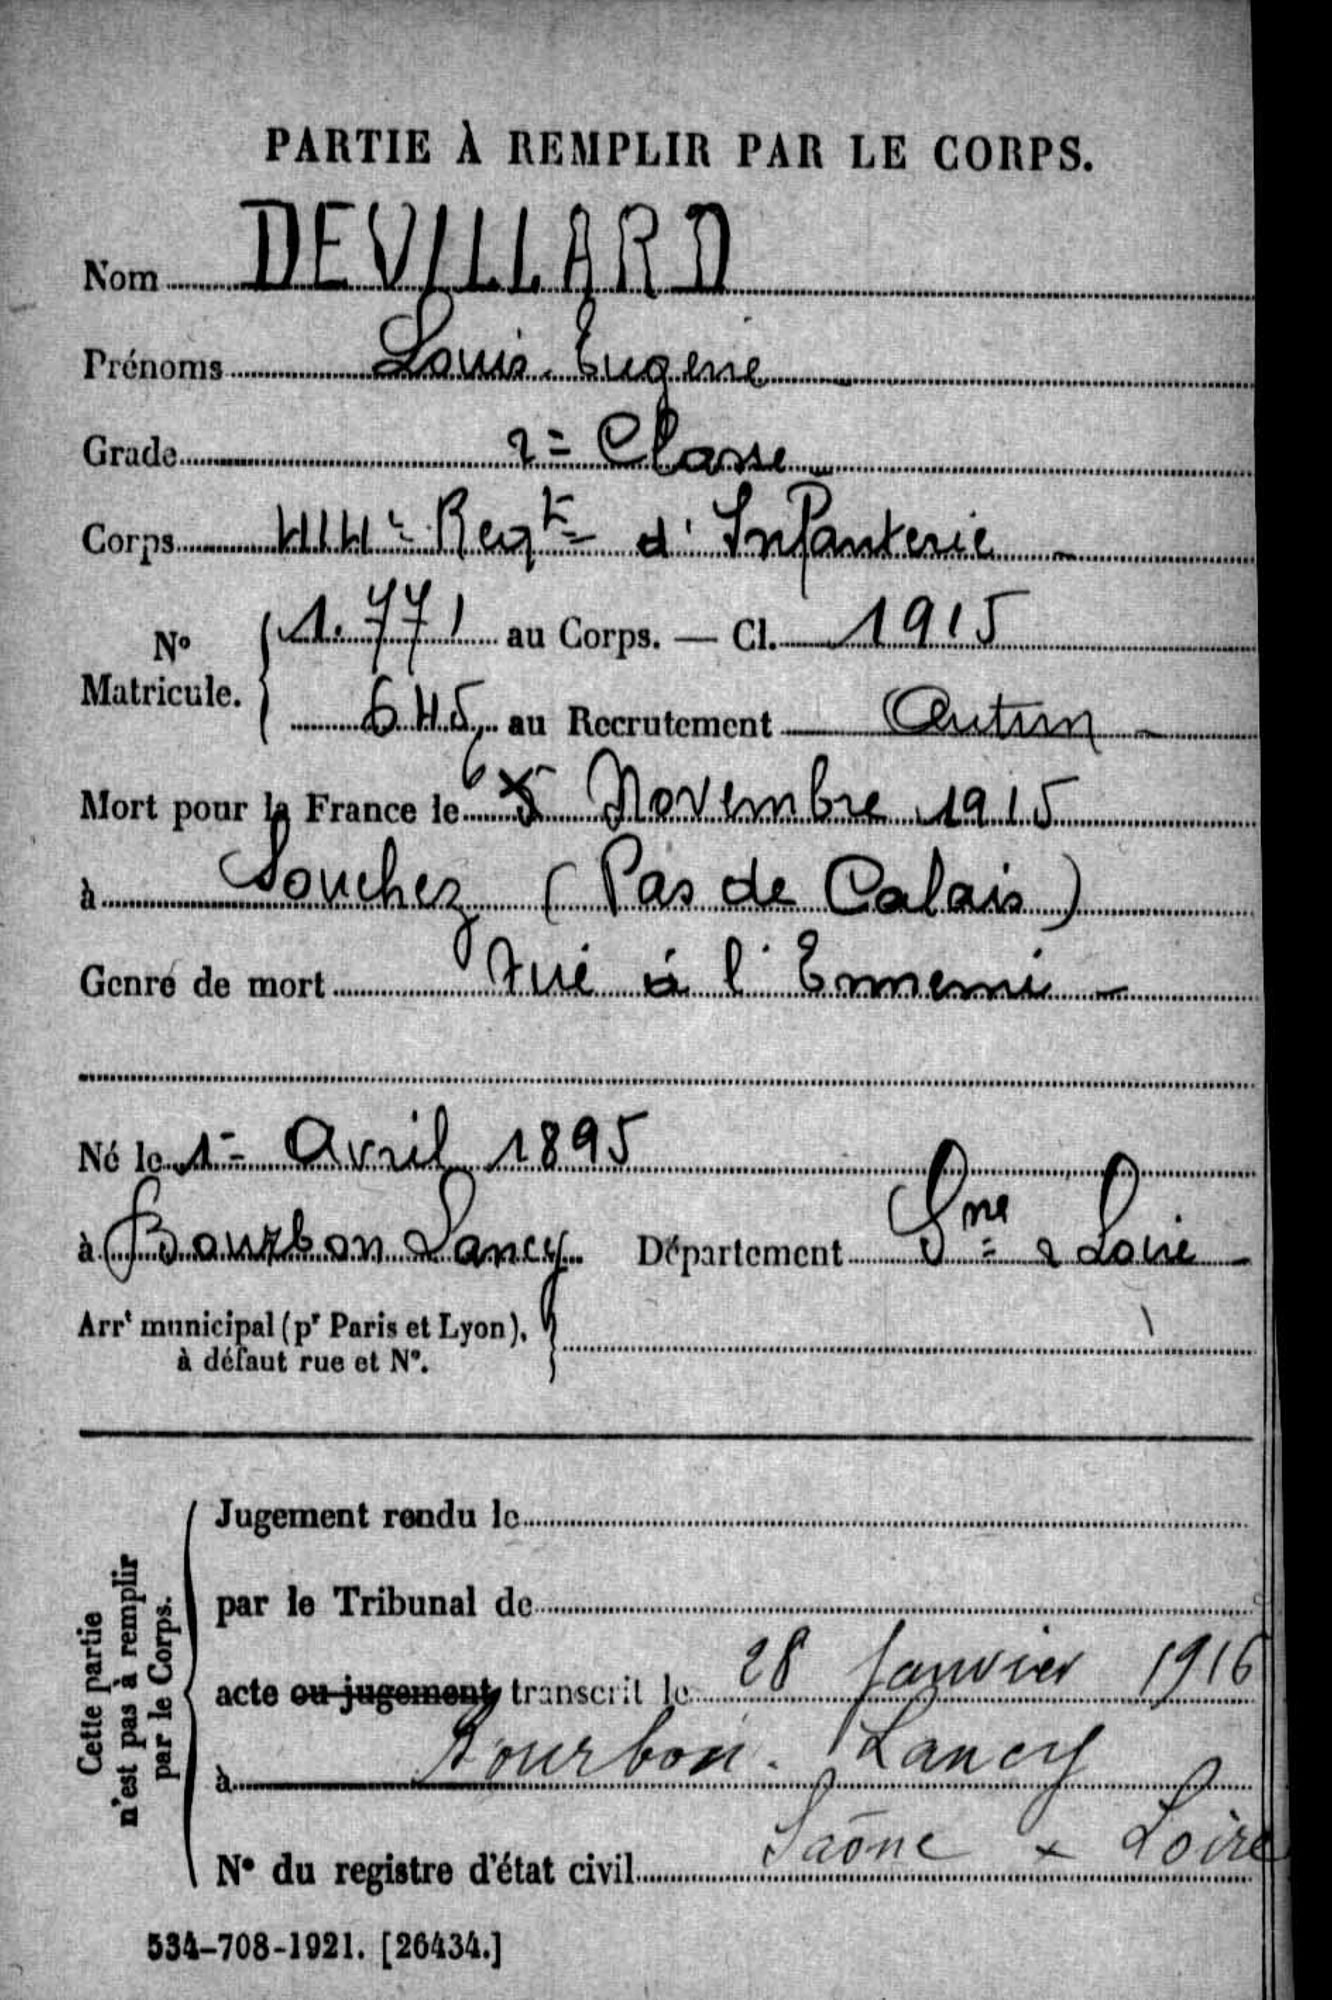 PARTIE À REMPLIR PAR LE CORPS.
Nom DEVILLARD
Prénoms Louis Eugène
Grade 2e Classe
Corps 414e Regt d'Infanterie
No Matricule. 1.771 au Corps. — Cl. 1915
645 au Recrutement Autun
Mort pour la France le 6 5 Novembre 1915
à Souchez (Pas de Calais)
Genre de mort tué à l'Ennemi
Né le 1er Avril 1895
à Bourbon Lancy Département Sne & Loire
Arrt municipal (pr Paris et Lyon),
à défaut rue et No.
Cette partie
n'est pas à remplir
par le Corps.
Jugement rendu le
par le Tribunal de
acte ou jugement transcrit le 28 Janvier 1916
à Bourbon-Lancy
Saône & Loire
No du registre d'état civil
534-708-1921. [26434.]